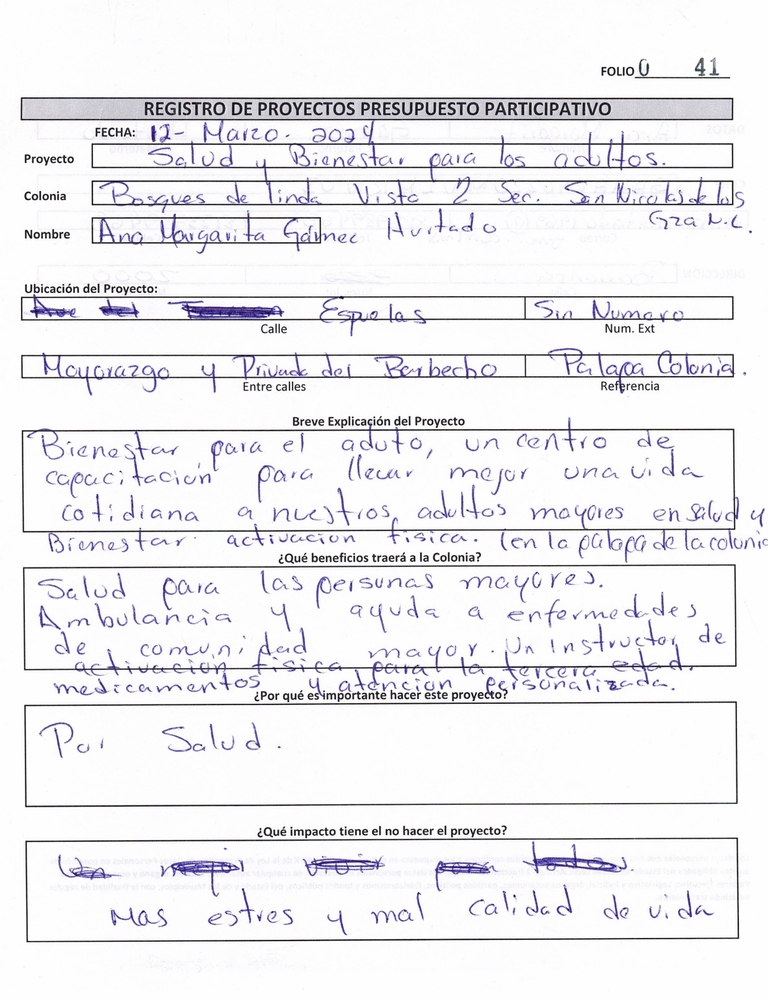 FOLIO 0 41
REGISTRO DE PROYECTOS PRESUPUESTO PARTICIPATIVO
FECHA: 12 - Marzo. 2024
Proyecto Salud y Bienestar para los adultos.
Colonia Bosques de linda Vista 2 Sec. San Nicolas de los
Gza N.L.
Nombre Ana Margarita Gámez Hurtado
Ubicación del Proyecto:
Ave del Espuelas Sin Numero
Calle Num. Ext
Mayorazgo y Privada del Barbecho Palapa Colonia.
Entre calles Referencia
Breve Explicación del Proyecto
Bienestar para el aduto, un centro de
capacitación para llevar mejor una vida
cotidiana a nuestros adultos mayores en salud y
Bienestar activacion fisica. (en la palapa de la colonia
¿Qué beneficios traerá a la Colonia?
Salud para las personas mayores.
Ambulancia y ayuda a enfermedades
de comunidad mayor. Un Instructor de
activacion fisica para la tercera edad.
medicamentos y atencion personalizada.
¿Por qué es importante hacer este proyecto?
Por Salud.
¿Qué impacto tiene el no hacer el proyecto?
Un mejor vivir para todos.
Mas estres y mal calidad de vida